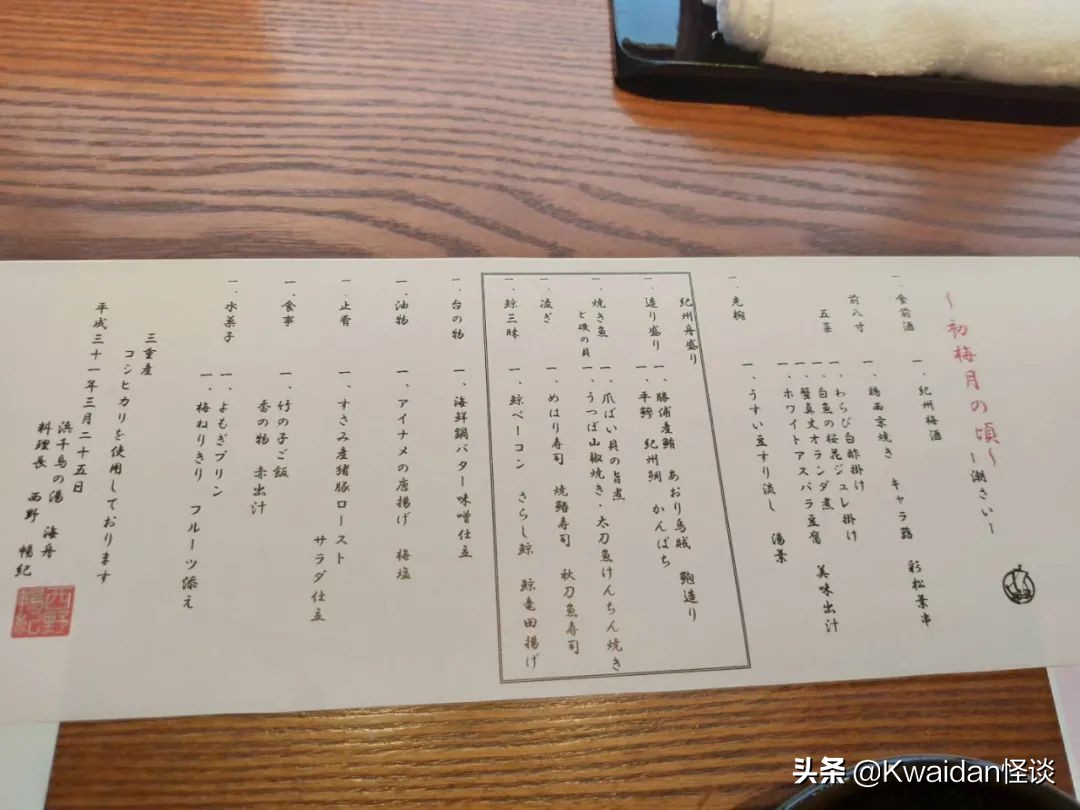 〜初梅月の頃〜
ー潮さいー
一、食前酒 一、紀州梅酒
前八寸 一、鶏西京焼き キャラ蕗 彩松葉串
五菜 一、わらび白酢掛け
一、白魚の桜花ジュレ掛け
一、蟹真丈オランダ煮 美味出汁
一、ホワイトアスパラ豆腐
一、先椀 一、うすい豆すり流し 湯葉
紀州舟盛り
一、造り盛り 一、勝浦産鮪 あおり烏賊 鮑造り
一、平鰤 紀州鯛 かんぱち
一、焼き魚と磯の貝 一、爪ばい貝の旨煮
一、うつぼ山椒焼き・太刀魚けんちん焼き
一、凌ぎ 一、めはり寿司 焼鯖寿司 秋刀魚寿司
一、鯨三昧 一、鯨ベーコン さらし鯨 鯨竜田揚げ
一、台の物 一、海鮮鍋バター味噌仕立
一、油物 一、アイナメの唐揚げ 梅塩
一、止肴 一、すさみ産猪豚ロースト サラダ仕立
一、食事 一、竹の子ご飯
香の物 赤出汁
一、水菓子 一、よもぎプリン フルーツ添え
一、梅ねりきり
三重産
コシヒカリを使用しております
平成三十一年三月二十五日
浜千鳥の湯 海舟
料理長 西野 暢紀
西野暢紀
头条 @Kwaidan怪谈